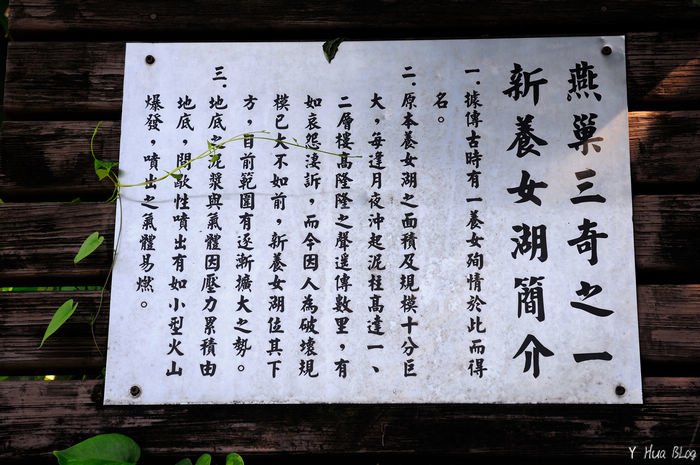 燕巢三奇之一
新養女湖簡介
一.據傳古時有一養女殉情於此而得
名。
二.原本養女湖之面積及規模十分巨
大，每逢月夜沖起泥柱高達一、
二層樓高隆隆之聲遥傳數里，有
如哀怨淒訴，而今因人為破壞規
模已大不如前，新養女湖位其下
方，目前範圍有逐漸擴大之勢。
三.地底之泥漿與氣體因壓力累積由
地底，間歇性噴出有如小型火山
爆發，噴出之氣體易燃。
Y Hua BLog